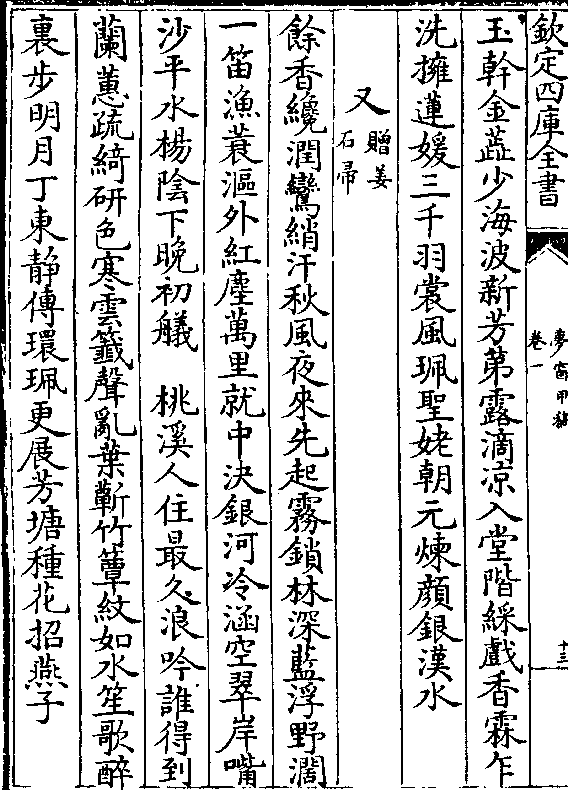 欽定四庫全書
夢窗甲稿
卷一
十三
玉幹金蕋少海波新芳第露滴凉入堂階綵戲香霖乍
洗擁蓮媛三千羽裳風珮聖姥朝元煉顔銀漢水
又
贈姜
石帚
餘香纔潤鸞綃汗秋風夜來先起霧鎖林深藍浮野濶
一笛漁蓑漚外紅塵萬里就中決銀河冷涵空翠岸嘴
沙平水楊陰下晚初艤　桃溪人住最久浪吟誰得到
蘭蕙疏綺研色寒雲籤聲亂葉蘄竹簟紋如水笙歌醉
裏步明月丁東静傳環珮更展芳塘種花招燕子